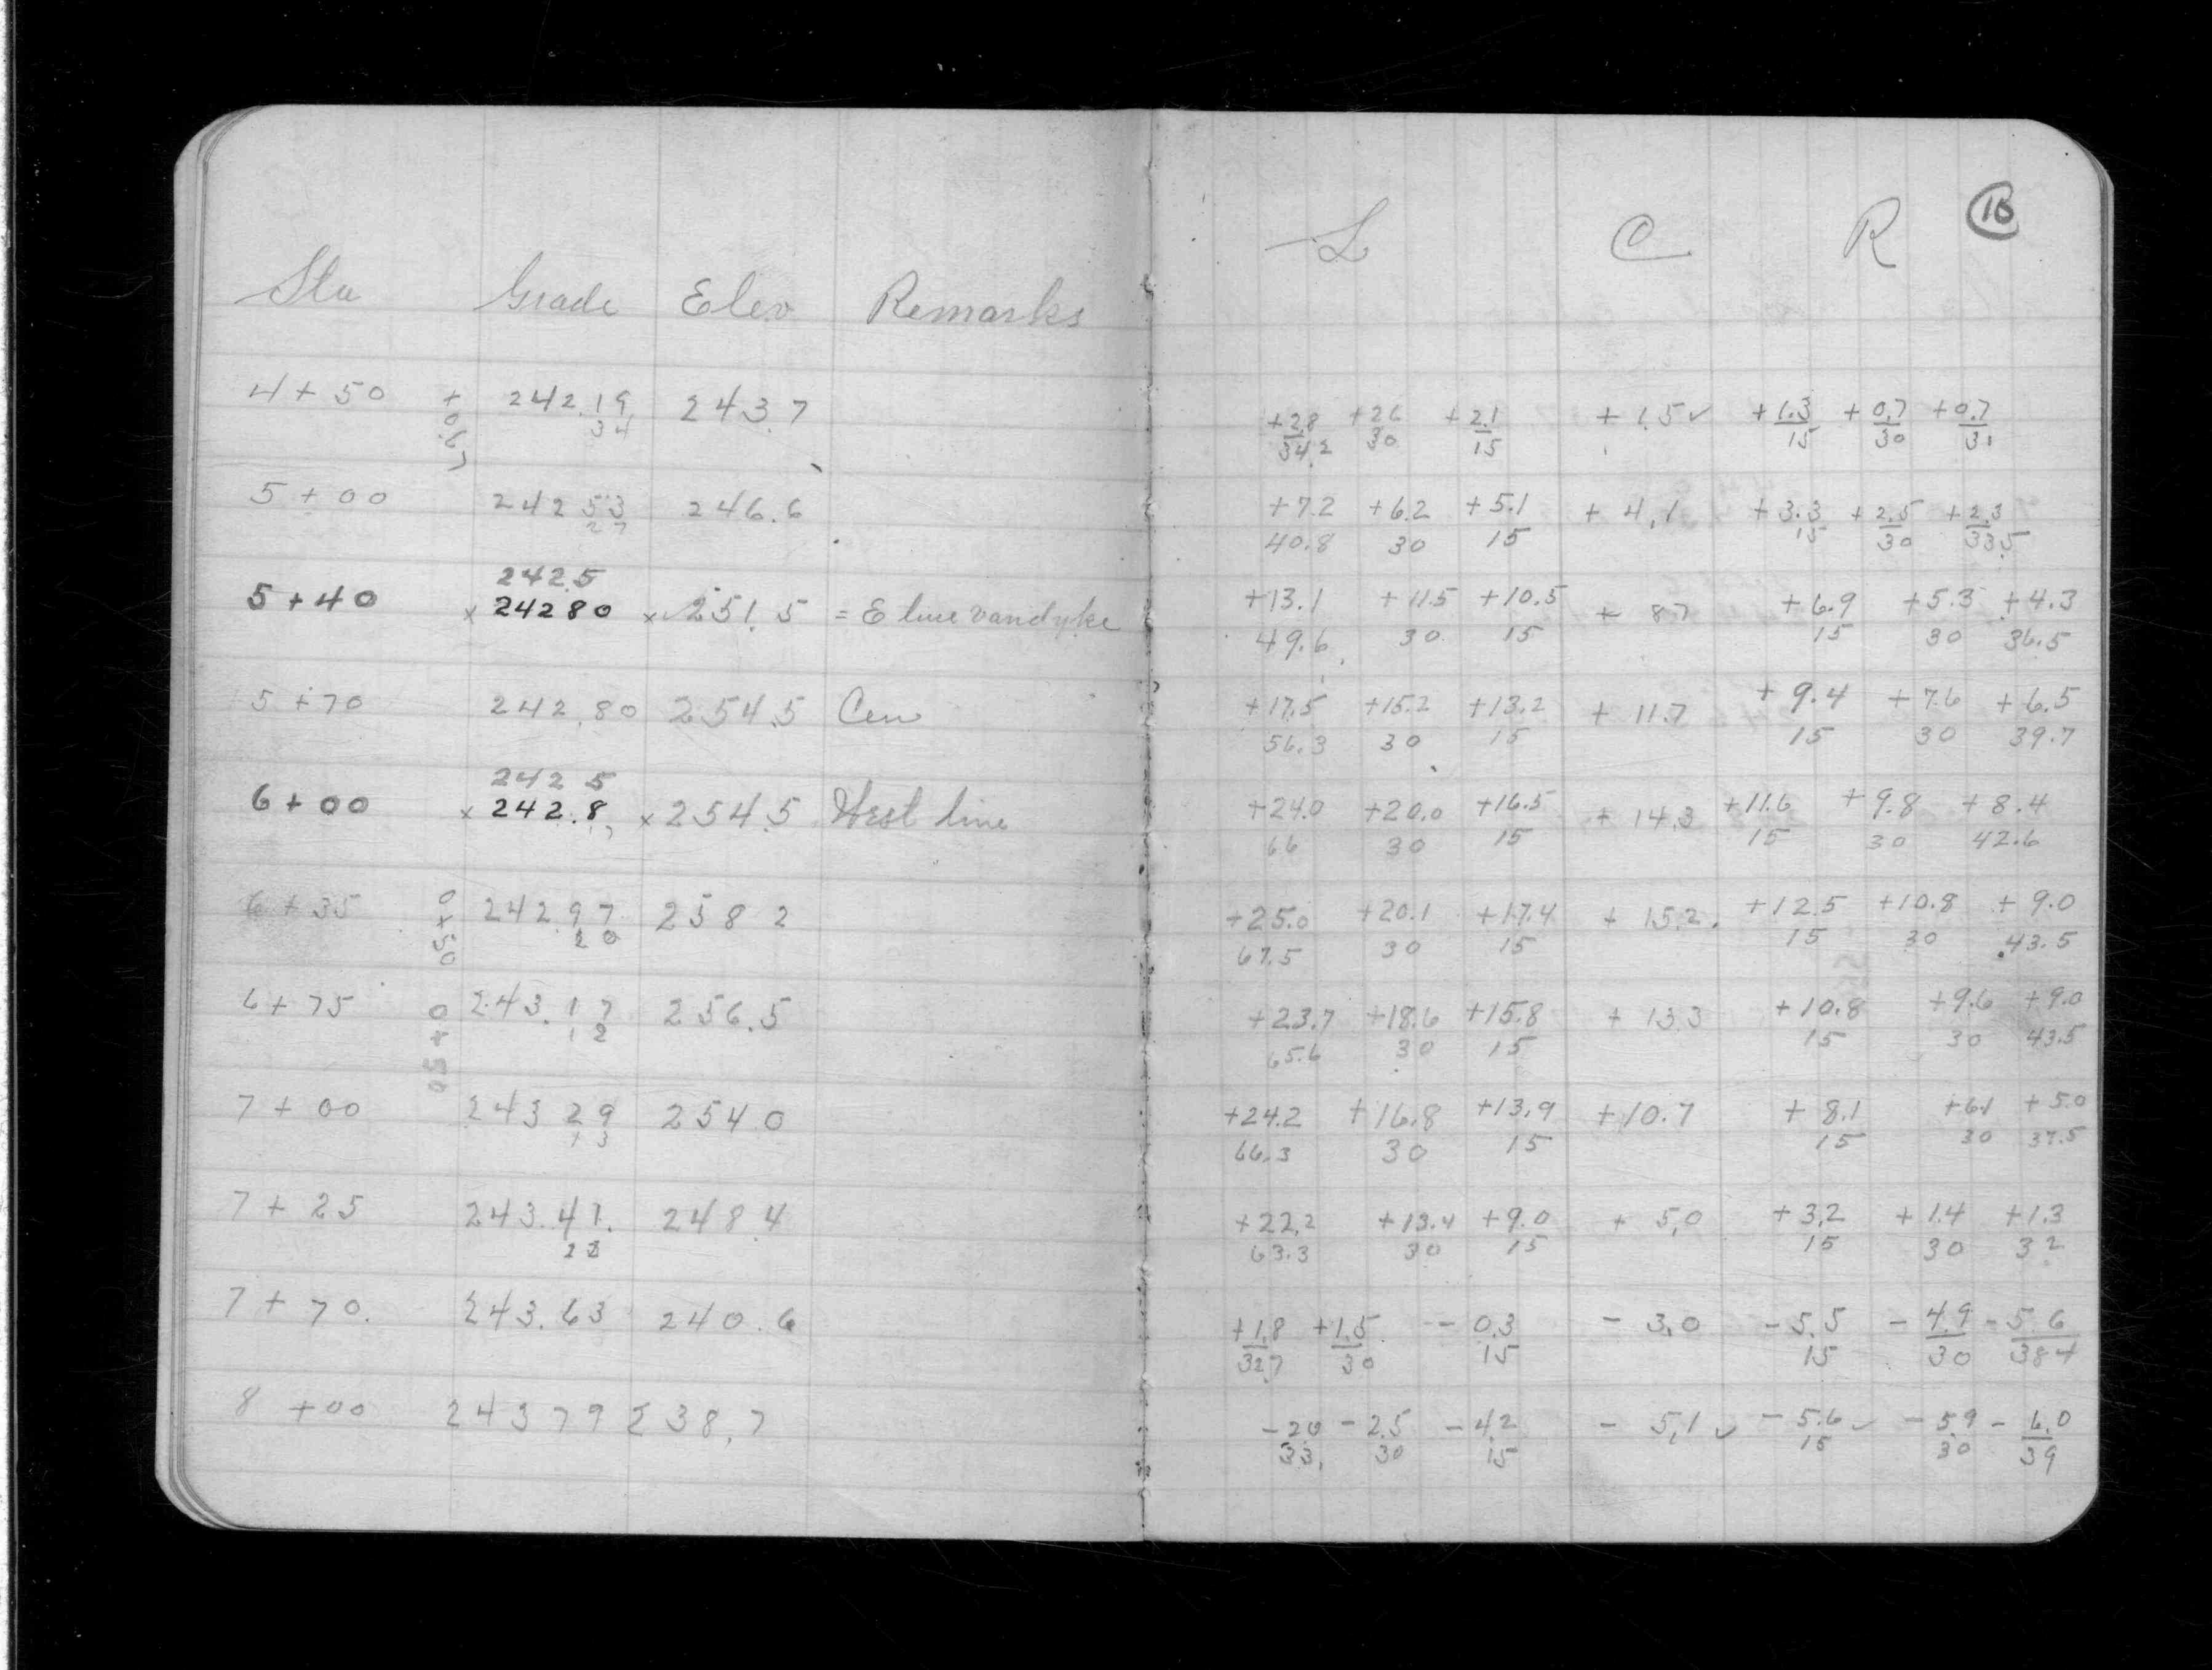 Sta Grade Elev Remarks
4+50 242.19 243.7
+0.67 34
5+00 242 53 246.6
27
242.5
5+40 x 24280 x 251.5 = E line vandyke
5+70 242.80 254.5 Cen
242 5
6+00 x 242.8 x 254.5 West line
6+35 242.97 258 2
0+50 20
6+75 243.17 256.5
0+50 12
7+00 243 29 254 0
13
7+25 243.41. 248.4
22
7+70. 243.63 240.6
8+00 243 79 238.7
L C R 16
+2.8 +26 +2.1 +1.5✓ +1.3 +0.7 +0.7
34.2 30 15 15 30 31
+7.2 +6.2 +5.1 +4.1 +3.3 +2.5 +2.3
40.8 30 15 15 30 33.5
+13.1 +11.5 +10.5 + 87 +6.9 +5.3 +4.3
49.6 30 15 15 30 36.5
+17.5 +15.2 +13.2 + 11.7 +9.4 +7.6 +6.5
56.3 30 15 15 30 39.7
+24.0 +20.0 +16.5 + 14.3 +11.6 +9.8 +8.4
66 30 15 15 30 42.6
+25.0 +20.1 +17.4 + 15.2. +12.5 +10.8 +9.0
67.5 30 15 15 30 43.5
+23.7 +18.6 +15.8 + 133 +10.8 +9.6 +9.0
65.6 30 15 15 30 43.5
+24.2 +16.8 +13.9 +10.7 +8.1 +6.1 +5.0
66.3 30 15 15 30 37.5
+22.2 +13.4 +9.0 + 5.0 +3.2 +1.4 +1.3
63.3 30 15 15 30 32
+1.8 +1.5 -0.3 -3.0 -5.5 -4.9 -5.6
32.7 30 15 15 30 384
-2.0 -2.5 -4.2 -5.1✓ -5.6✓ -5.9 -6.0
33. 30 15 15 30 39